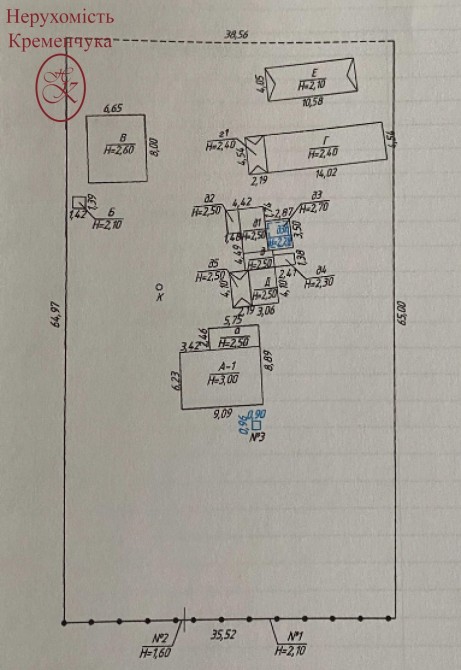 Нерухомість
Кременчука
38,56
Е
Н=2,10
4,05
10,58
6,65
В
Н=2,60
8,00
г1
Н=2,40
4,54
Г
Н=2,40
4,54
2,19
14,02
1,39
1,42
Б
Н=2,10
д2
Н=2,50
4,42
2,87
д3
Н=2,70
д1
Н=2,50
3,50
1,48
4,49
д
Н=2,50
1,38
д5
Н=2,50
2,41
д4
Н=2,30
4,10
Д
Н=2,50
4,10
2,19
3,06
К
64,97
65,00
5,75
2,46
а
Н=2,50
3,42
А-1
Н=3,00
8,89
6,23
9,09
0,96
0,90
№3
№2
Н=1,60
35,52
№1
Н=2,10